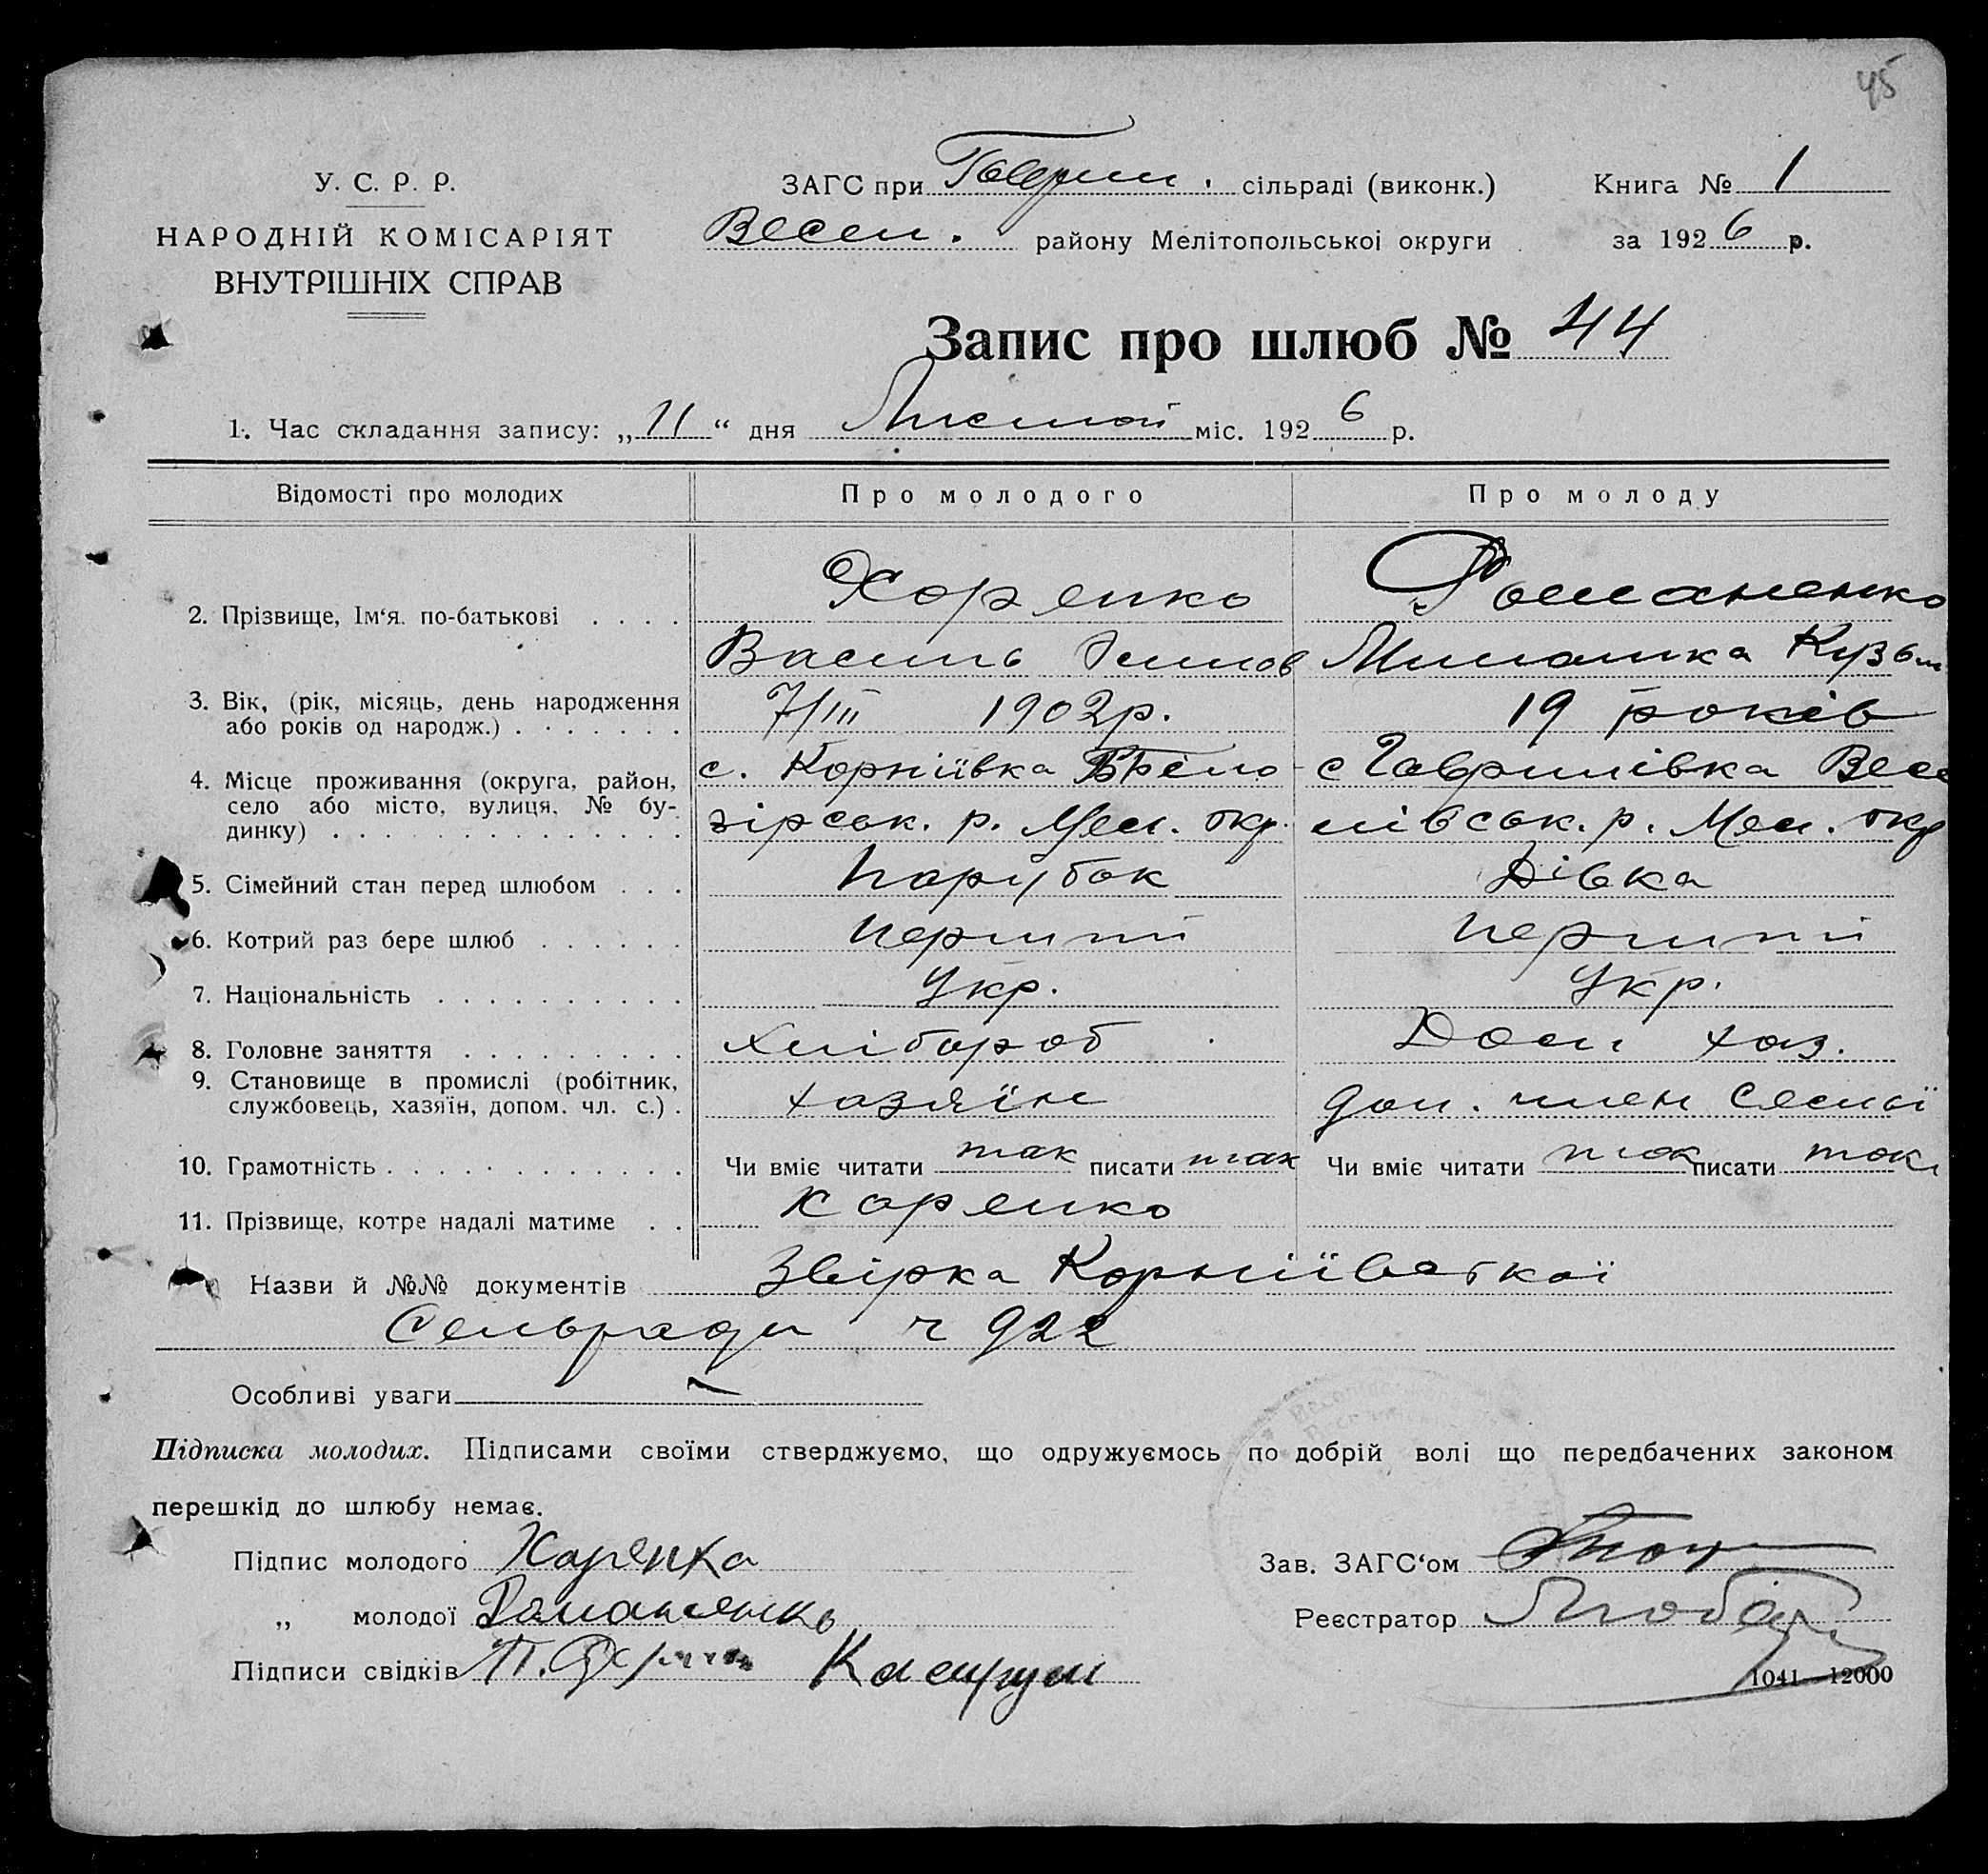 45
У. С. Р. Р.
НАРОДНІЙ КОМІСАРІЯТ
ВНУТРІШНІХ СПРАВ
ЗАГС при Гаврил. сільраді (виконк.)
Весел. району Мелітопольської округи
Книга № 1
за 1926 р.
Запис про шлюб № 44
1. Час складання запису: „11“ дня міс. 1926 р.
Відомості про молодих Про молодого Про молоду
2. Прізвище, Ім‘я. по-батькові Харенко Романенко
Василь Миланка Кузьм
3. Вік, (рік, місяць, день народження
або років од народж.) 7/III 1902р. 19 років
4. Місце проживання (округа, район,
село або місто, вулиця, № бу-
динку)
с. Корніївка Біло с Гаврилівка Весе
зірськ. р. Мел. окр. лівськ. р. Мел. окр
5. Сімейний стан перед шлюбом Парубок Дівка
6. Котрий раз бере шлюб перший перший
7. Національність Укр. Укр.
8. Головне заняття хлібороб Дом хаз.
9. Становище в промислі (робітник,
службовець, хазяїн, допом. чл. с.) хазяїн доп. член семьї
10. Грамотність Чи вміє читати так писати так Чи вміє читати так писати так
11. Прізвище, котре надалі матиме Харенко
Назви й №№ документів Звірка Корніївської
Сельради ч 922
Особливі уваги
Підписка молодих. Підписами своїми стверджуємо, що одружуємось по добрій волі що передбачених законом
перешкід до шлюбу немає.
Підпис молодого Харенко
„ молодої Романенко
Підписи свідків
Зав. ЗАГС‘ом
Реєстратор
1041—12000